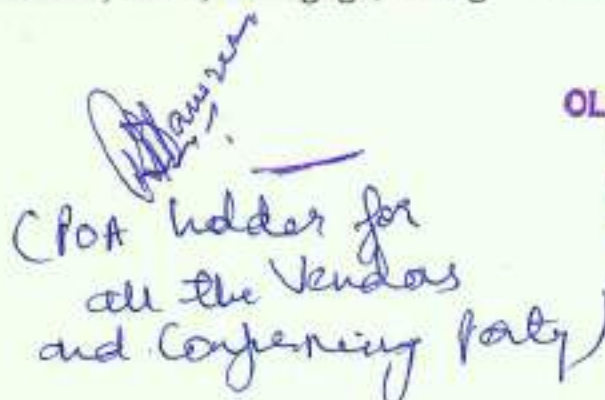 OL
(POA holder for
all the Vendors
and Confirming Party)